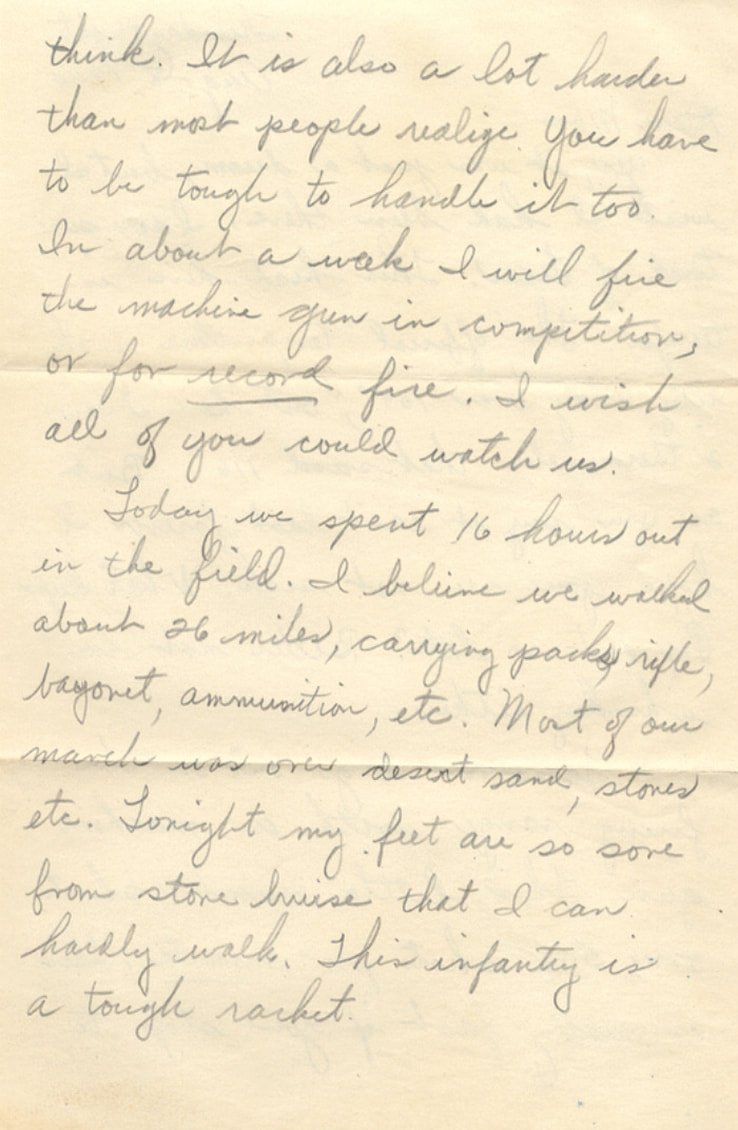 think. It is also a lot harder
than most people realize. You have
to be tough to handle it too.
In about a week I will fire
the machine gun in competition,
or for record fire. I wish
all of you could watch us.
Today we spent 16 hours out
in the field. I believe we walked
about 26 miles, carrying packs, rifle,
bayonet, ammunition, etc. Most of our
march was over desert sand, stones
etc. Tonight my feet are so sore
from stone bruise that I can
hardly walk. This infantry is
a tough racket.